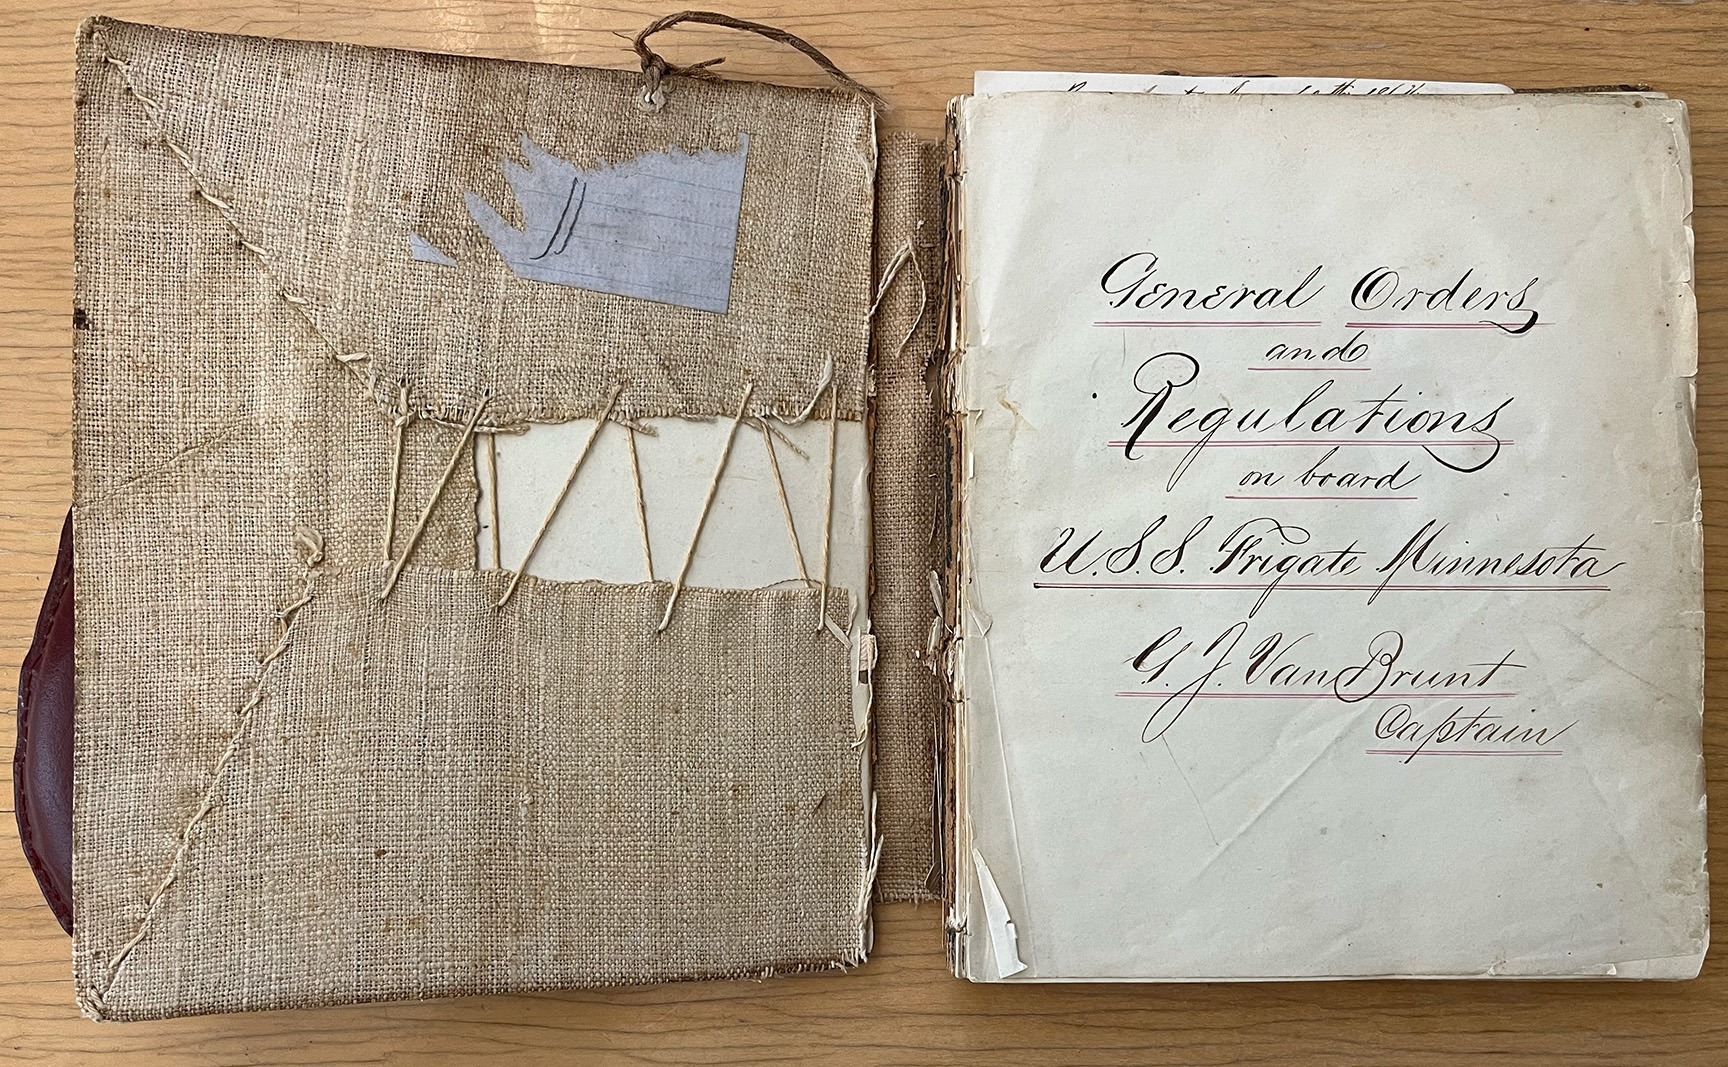 General Orders
and
Regulations
on board
U.S.S. Frigate Minnesota
G. J. Van Brunt
Captain